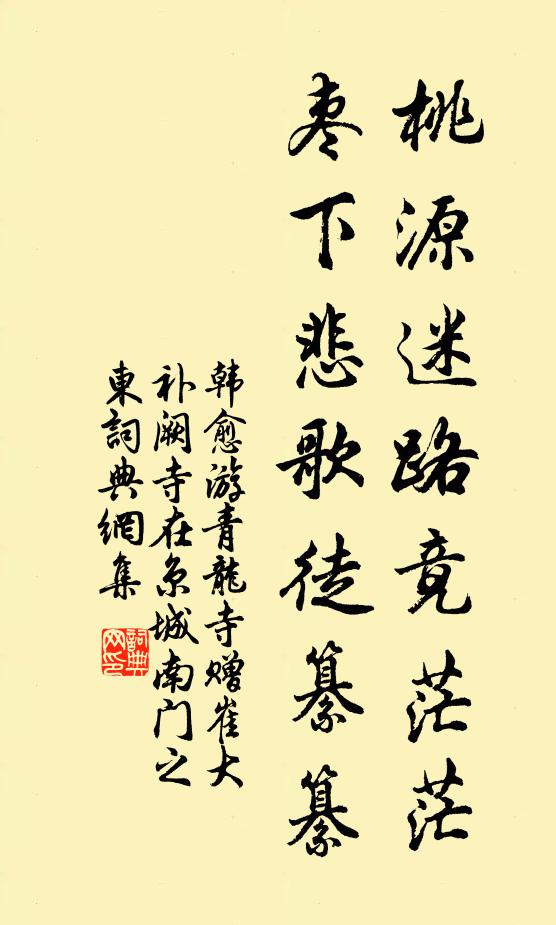 桃源迷路竟茫茫
枣下悲歌徒纂纂
韩愈游青龍寺赠崔大
补阙寺在京城南门之
東詞典網集
詞典
网印